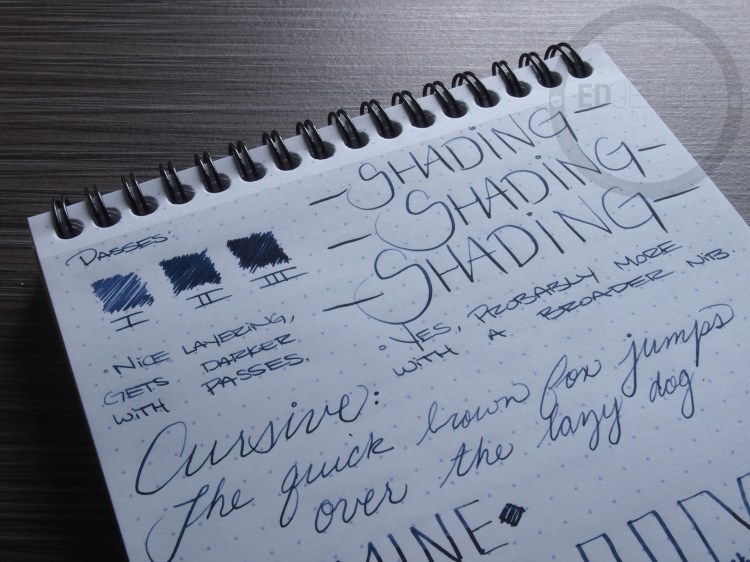 PASSES:
I II III
• NICE LAYERING,
GETS DARKER
WITH PASSES.
— SHADING —
— SHADING —
— SHADING —
• YES, PROBABLY MORE
WITH A BROADER NIB.
Cursive:
The quick brown fox jumps
over the lazy dog
MINE